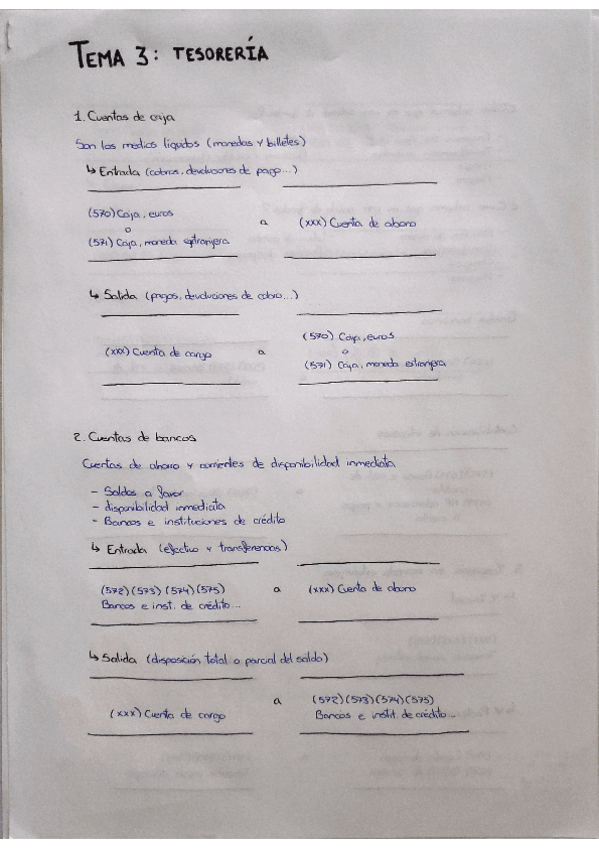 TEMA 3: TESORERÍA
1. Cuentas de caja
Son los medios líquidos (monedas y billetes)
↳ Entrada (cobros, devoluciones de pago...)
(570) Caja, euros
o
(571) Caja, moneda extranjera
a
(xxx) Cuenta de abono
↳ Salida (pagos, devoluciones de cobro...)
(xxx) Cuenta de cargo
a
(570) Caja, euros
o
(571) Caja, moneda extranjera
2. Cuentas de bancos
Cuentas de ahorro y corrientes de disponibilidad inmediata
- Saldos a favor
- disponibilidad inmediata
- Bancos e instituciones de crédito
↳ Entrada (efectivo y transferencias)
(572) (573) (574) (575)
Bancos e inst. de crédito...
a
(xxx) Cuenta de abono
↳ Salida (disposición total o parcial del saldo)
(xxx) Cuenta de cargo
a
(572) (573) (574) (575)
Bancos e instit. de crédito...